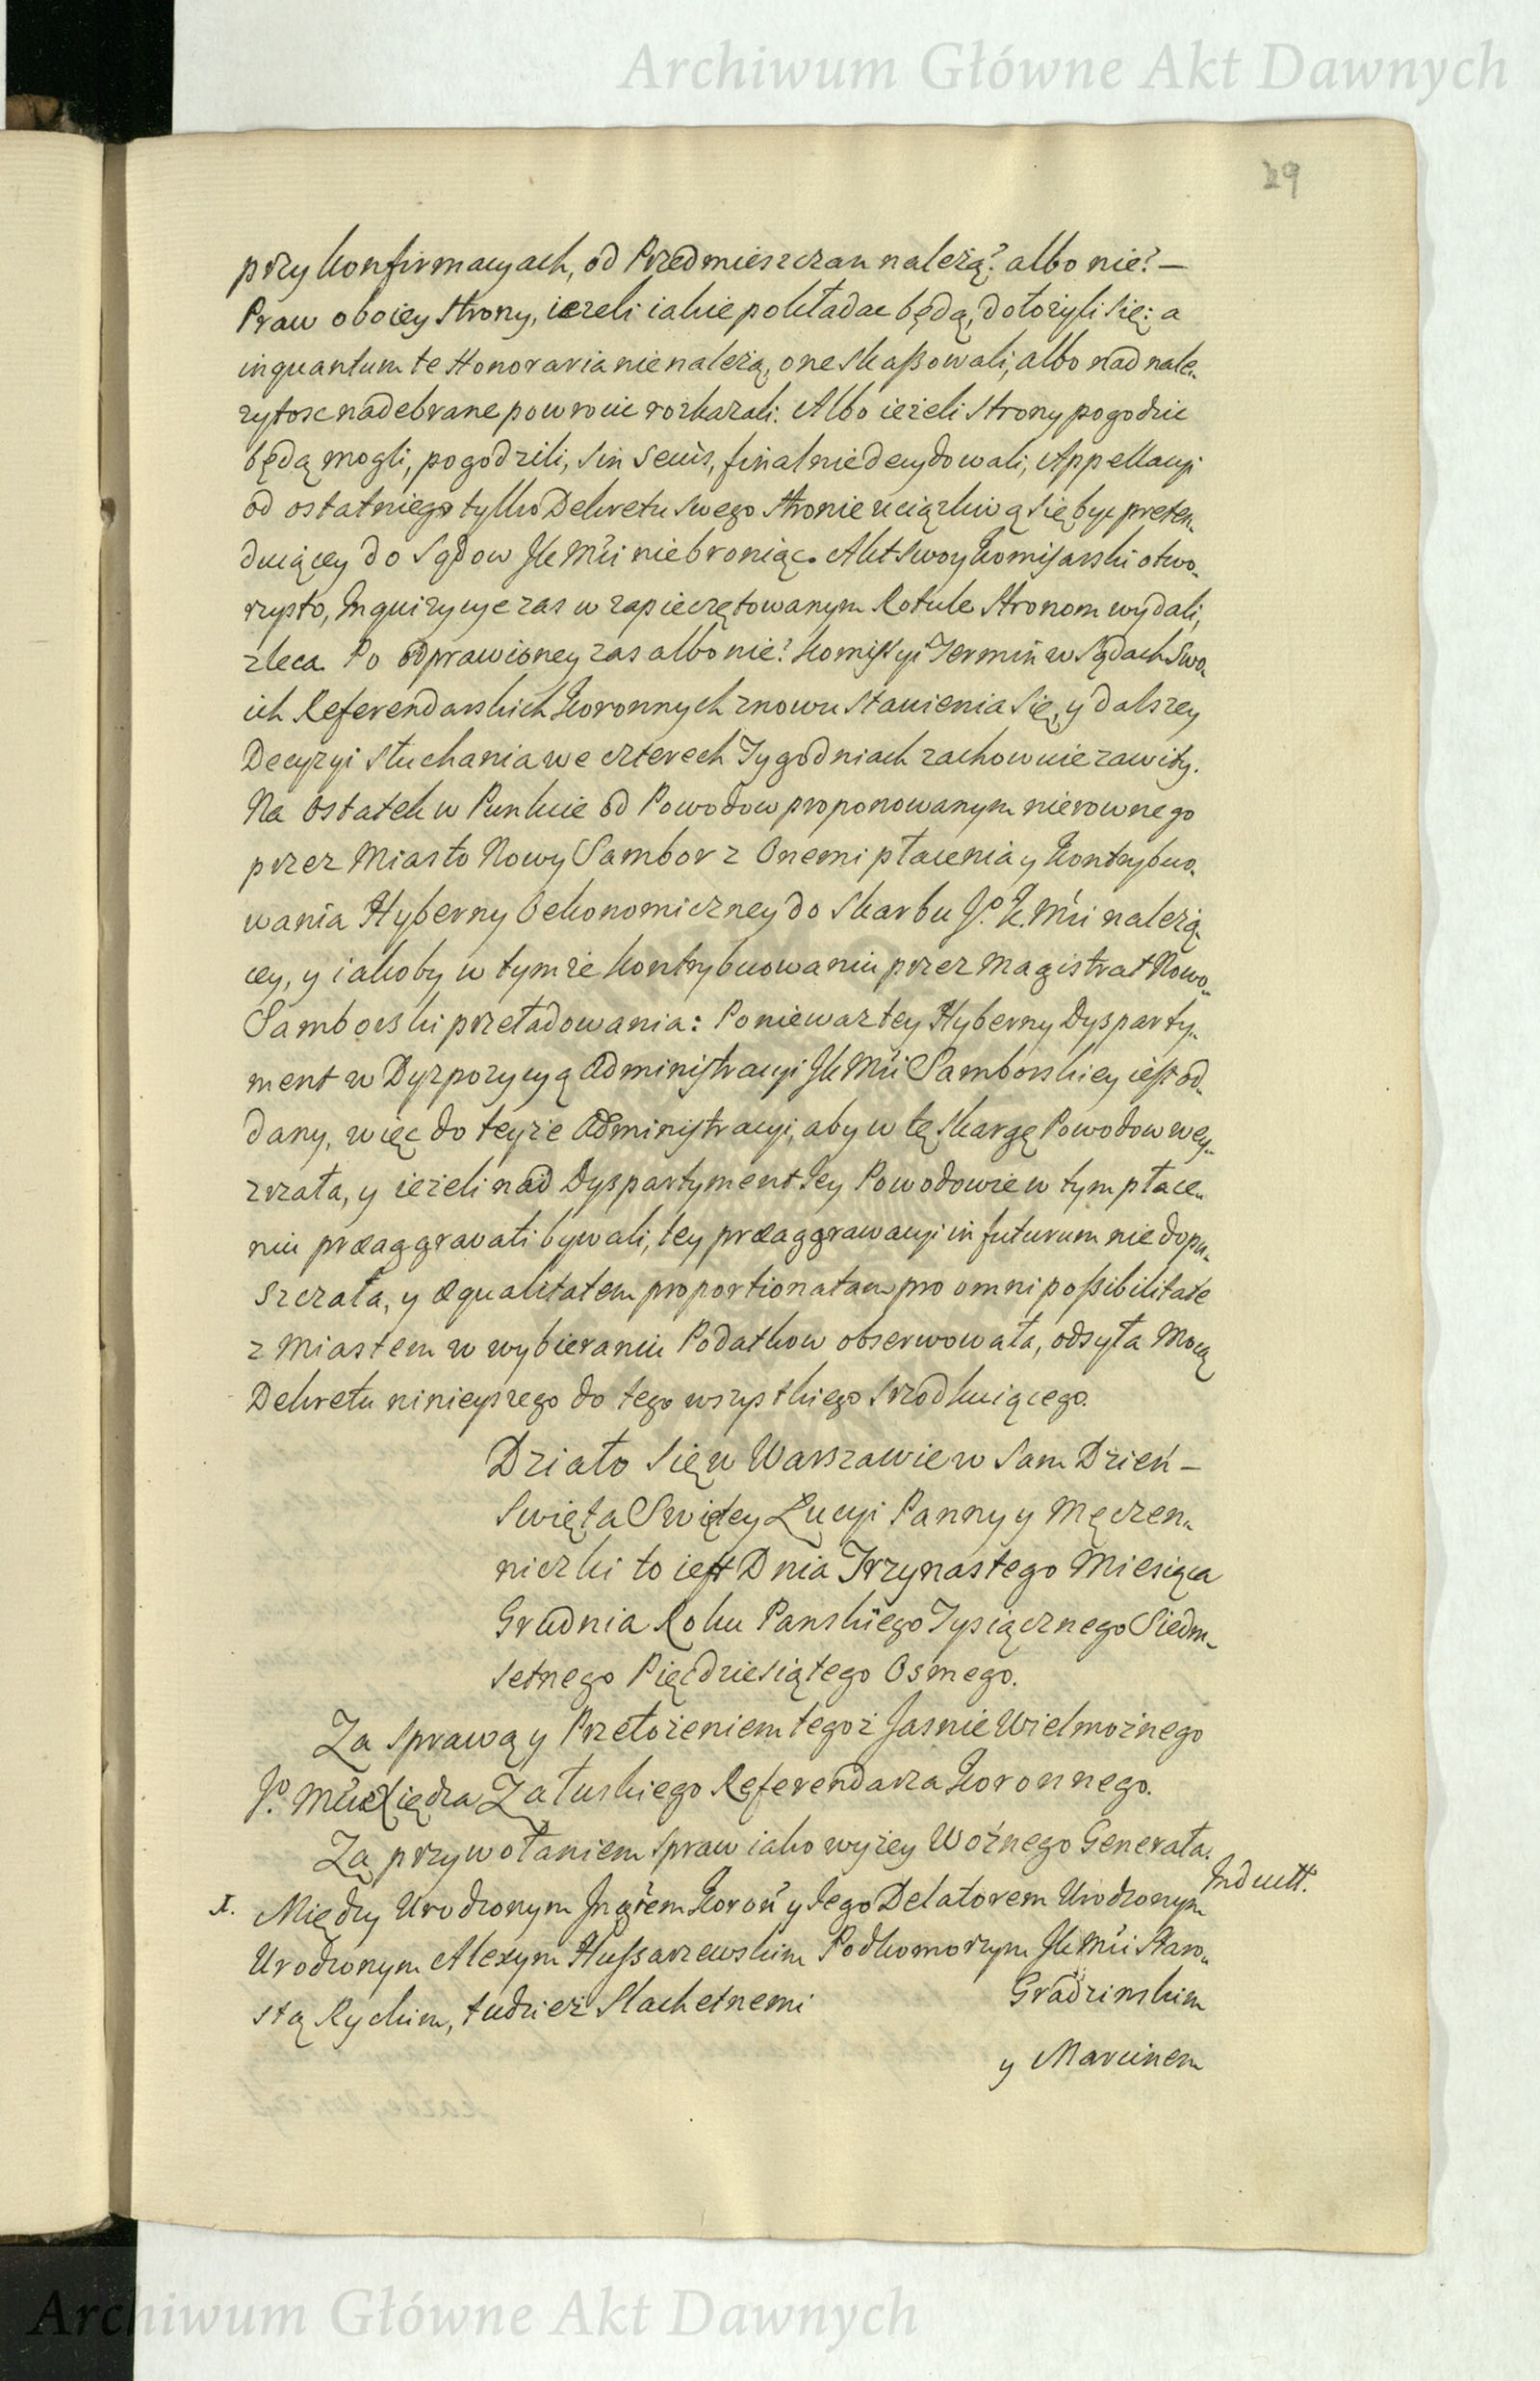 Archiwum Główne Akt Dawnych
29
przy konfirmacyach, od Przedmieszczan należą? albo nie? —
Praw oboiey strony, ieżeli iakie pokładac będą, dołożyli się: a
inquantum te Honoraria nie należą, one skassowali, albo nad nale-
żytosc nadebrane powrocic rozkazali. Albo ieżeli strony pogodzic
będą mogli, pogodzili, sin secus, finalnie decydowali, Appellacyi
od ostatniego tylko Dekretu swego stronie uciążliwą się byc preten-
duiącey do Sądow JK Mci niebroniąc. Akt swoy Komisarski otwo-
rzysto, Inquizycye zas w zapieczętowanym Rotule stronom wydali,
zleca. Po odprawioney zas albo nie? Komissyi Termin w Sądach Swo-
ich Referendarskich Koronnych znowu stawienia się, y dalszey
Decyzyi słuchania we czterech Tygodniach zachowuie zawity.
Na ostatek w Punkcie od Powodow proponowanym nierownego
przez Miasto Nowy Sambor z Onemi płacenia y kontrybuo-
wania Hyberny Oekonomiczney do Skarbu Jº K. Mci należą-
cey, y iakoby w tymże kontrybuowaniu przez Magistrat Nowo-
Samborski przeładowania: Ponieważ tey Hyberny Dysparty-
ment w Dyzpozycyą Administracyi JK Mci Samborskiey iest od-
dany, więc do teyże Administracyi, aby w tę skargę Powodow wey-
zrzała, y ieżeli nad Dyspartyment Jey Powodowie w tym płace-
niu præaggravati bywali, tey præaggrawacyi in futurum nie dopu-
szczała, y æqualitatem proportionatam pro omni possibilitate
z Miastem w wybieraniu Podatkow obserwowała, odsyła Mocą
Dekretu ninieyszego do tego wszystkiego srzodkuiącego.
Działo się w Warszawie w Sam Dzień —
Swięta Swiętey Łucyi Panny y Męczen-
niczki to iest Dnia Trzynastego Miesiąca
Grudnia Roku Panskiego Tysiącznego Siedm-
setnego Pięcdziesiątego Osmego.
Za sprawą y Przełożeniem tegoż Jasnie Wielmożnego
Jº Mci Xiędza Załuskiego Referendarza Koronnego.
Za przywołaniem spraw iako wyżey Woźnego Generała.
Indukt.
1. Między Urodzonym Instrem Koroñ y Jego Delatorem Urodzonym
Urodzonym Alexym Hussarzewskim Podkomorzym JK Mci Staro-
stą Ryckim, tudzież Slachetnemi Gradzinskim
y Marcinem
Archiwum Główne Akt Dawnych